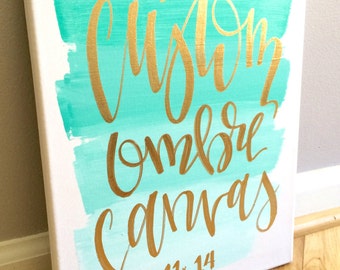 Custom
ombre
canvas
11. 14